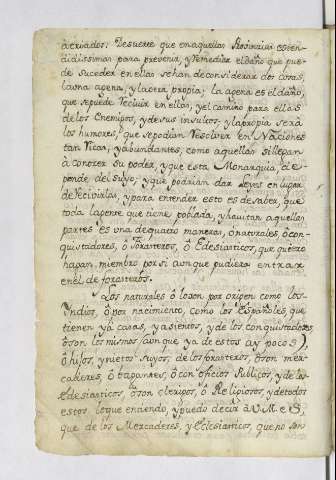 ácriados: Desuerte que enaquellas Provincias esten-
didissimas para prevenir, y remediar eldaño que pue-
de suceder en ellas sehan deconsiderar dos cosas,
launa agena, y laotra propia; la agena es eldaño,
que sepuede recivir en ellas, y el camino para ellas
de los Enemigos, y desus insultos. y lapropia será
los humores, que sepodian resolver en Naciones
tan Ricas, y abundantes, como aquellas sillegan
á conozer su poder, y que esta Monarquia, de-
pende del suyo; y que podrian dar Leyes en lugar
de recivirlas, y para entender esto es desaber, que
toda lagente que tiene poblada, y havitan aquellas
partes es una dequatro maneras, ó naturales, ó con-
quistadores, ó forasteros, ó Eclesiasticos, que quiero
hagan miembro por si aunque pudiera entrar
en el de forasteros.
Los naturales ó loson por origen como los
Yndios, ó por nacimiento, como los Españoles, que
tienen yá casas, y asientos, y de los conquistadores
ó son los mismos aunque ya de estos ay pocos,
ó hijos, y nietos suyos; de los forasteros, ó son mer-
caderes, ó tratantes, ó con oficios Publicos, y de los
Eclesiasticos, ó son clerigos, ó Religiosos, y detodos
estos loque entiendo, y puedo decir á V. M. es,
que de los Mercaderes, y Eclesiasticos, que no son